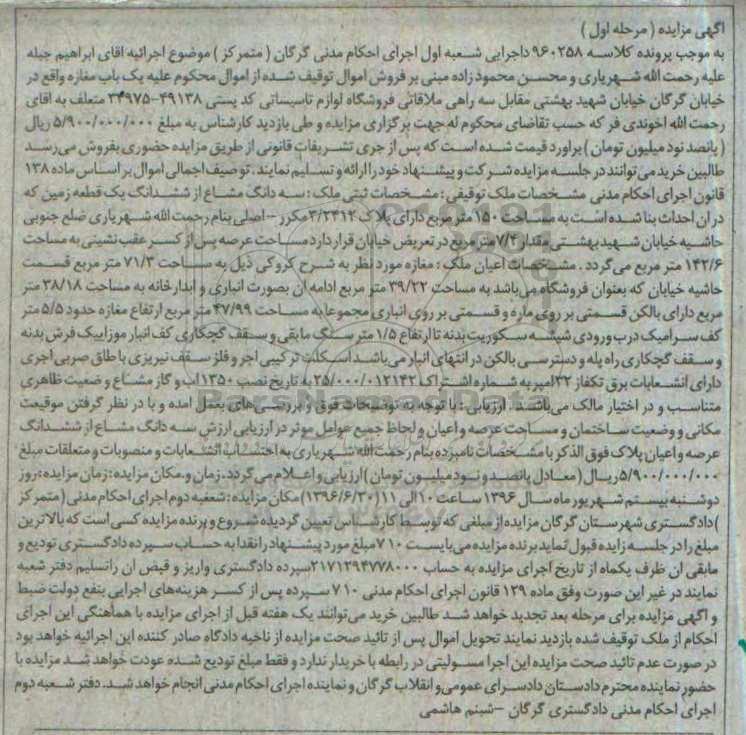 آگهی مزایده ( مرحله اول )
به موجب پرونده کلاسه ۹۶۰۲۵۸ داجرایی شعبه اول اجرای احکام مدنی گرگان ( متمرکز ) موضوع اجرائیه اقای ابراهیم جبله
علیه رحمت الله شهریاری و محسن محمودزاده مبنی بر فروش اموال توقیف شده از اموال محکوم علیه یک باب مغازه واقع در
خیابان گرگان خیابان شهید بهشتی مقابل سه راهی ملاقاتی فروشگاه لوازم تاسیساتی کد پستی ۴۹۱۳۸-۳۴۹۷۵ متعلق به اقای
رحمت الله اخوندی فر که حسب تقاضای محکوم له جهت برگزاری مزایده و طی بازدید کارشناس به مبلغ ۵/۹۰۰/۰۰۰/۰۰۰ ریال
( پانصد نود میلیون تومان ) براورد قیمت شده است که پس از جری تشریفات قانونی از طریق مزایده حضوری بفروش می‌رسد
طالبین خرید می‌توانند در جلسه مزایده شرکت و پیشنهاد خود را ارائه و تسلیم نمایند . توصیف اجمالی اموال بر اساس ماده ۱۳۸
قانون اجرای احکام مدنی مشخصات ملک توقیفی : مشخصات ثبتی ملک : سه دانگ مشاع از ششدانگ یک قطعه زمین که
در ان احداث بنا شده است به مساحت ۱۵۰ متر مربع دارای پلاک ۳/۲۴۱۲ مکرر – اصلی بنام رحمت الله شهریاری ضلع جنوبی
حاشیه خیابان شهید بهشتی مقدار ۷/۴ متر مربع در تعریض خیابان قرار دارد مساحت عرصه پس از کسر عقب نشینی به مساحت
۱۴۲/۶ متر مربع می گردد . مشخصات اعیان ملک : مغازه مورد نظر به شرح کروکی ذیل به مساحت ۷۱/۳ متر مربع قسمت
حاشیه خیابان که بعنوان فروشگاه می‌باشد به مساحت ۳۹/۲۲ متر مربع ادامه ان بصورت انباری و ابدارخانه به مساحت ۳۸/۱۸ متر
مربع دارای بالکن قسمتی بر روی مازه و قسمتی بر روی انباری مجموعا به مساحت ۴۷/۹۹ متر مربع ارتفاع مغازه حدود ۵/۵ متر
کف سرامیک درب ورودی شیشه سکوریت بدنه تا ارتفاع ۱/۵ متر سنگ مابقی و سقف گچکاری کف انبار موزاییک فرش بدنه
و سقف گچکاری راه پله و دسترسی بالکن در انتهای انبار می‌باشد اسکلت ترکیبی اجر و فلز سقف تیریزی با طاق ضربی اجری
دارای انشعابات برق تکفاز ۳۲ امپر به شماره اشتراک ۲۵/۰۰۰/۰۱۲۱۴۲ به تاریخ نصب ۱۳۵۰ اب و گاز مشاع و ضعیت ظاهری
متناسب و در اختیار مالک می‌باشد . ارزیابی : با توجه به توضیحات فوق و بررسی های بعمل امده و با در نظر گرفتن موقیعت
مکانی و وضعیت ساختمان و مساحت عرصه و اعیان و لحاظ جمیع عوامل موثر در ارزیابی ارزش سه دانگ مشاع از ششدانگ
عرصه و اعیان پلاک فوق الذکر با مشخصات نامبرده بنام رحمت الله شهریاری به احتساب انشعابات و منصوبات و متعلقات مبلغ
۵/۹۰۰/۰۰۰/۰۰۰ ریال ( معادل پانصد و نود میلیون تومان ) ارزیابی و اعلام می گردد . زمان و مکان مزایده : زمان مزایده : روز
دوشنبه بیستم شهریور ماه سال ۱۳۹۶ ساعت ۱۰ الی ۱۱ (۱۳۹۶/۶/۲۰) مکان مزایده : شعبه دوم اجرای احکام مدنی ( متمرکز
) دادگستری شهرستان گرگان مزایده از مبلغی که توسط کارشناس تعیین گردیده شروع و برنده مزایده کسی است که بالاترین
مبلغ را در جلسه زایده قبول نماید برنده مزایده می‌بایست ۱۰٪ مبلغ مورد پیشنهاد را نقدا به حساب سپرده دادگستری تودیع و
مابقی ان ظرف یکماه از تاریخ اجرای مزایده به حساب ۲۱۷۱۲۹۴۷۷۸۰۰۰ سپرده دادگستری واریز و قبض ان را تسلیم دفتر شعبه
نمایند در غیر این صورت وفق ماده ۱۲۹ قانون اجرای احکام مدنی ۱۰٪ سپرده پس از کسر هزینه‌های اجرایی بنفع دولت ضبط
و اگهی مزایده برای مرحله بعد تجدید خواهد شد طالبین خرید می‌توانند یک هفته قبل از اجرای مزایده با هماهنگی این اجرای
احکام از ملک توقیف شده بازدید نمایند تحویل اموال پس از تائید صحت مزایده از ناخیه دادگاه صادر کننده این اجرائیه خواهد بود
در صورت عدم تائید صحت مزایده این اجرا مسولیتی در رابطه با خریدار ندارد و فقط مبلغ تودیع شده عودت خواهد شد مزایده با
حضور نماینده محترم دادستان دادسرای عمومی و انقلاب گرگان و نماینده اجرای احکام مدنی انجام خواهد شد . دفتر شعبه دوم
اجرای احکام مدنی دادگستری گرگان – شبنم هاشمی
ParsNamadData